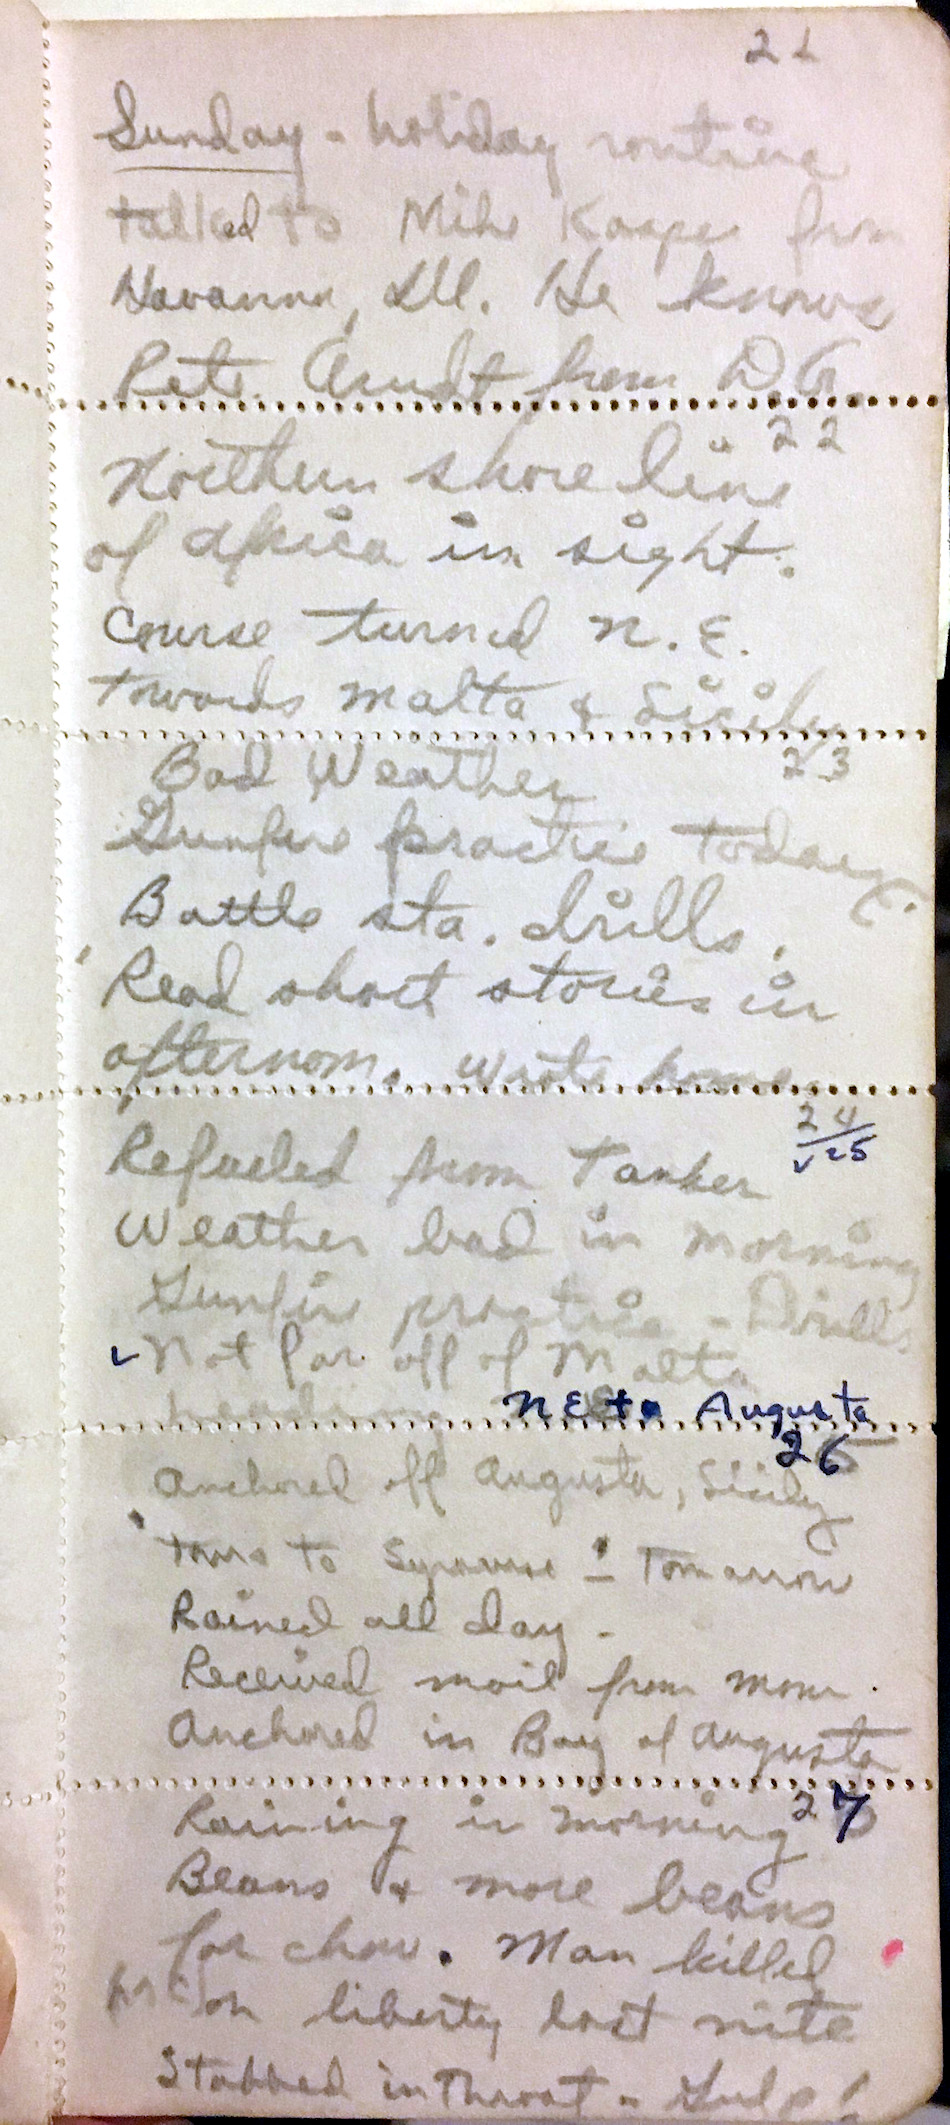 21
Sunday - holiday routine
talked to Mike from
Havanna, Ill. He knows
Pete Arndt from D.G.
22
Northern shore line
of Africa in sight.
Course turned N.E.
Towards Malta & Sicily
Bad Weather 23
Gunfire practice today.
Battle sta. drills.
Read short stories in
afternoon. Wrote home
24
Refueled from Tanker 25
Weather bad in morning
Gunfire practice - Drills
Not far off of Malta
NE to Augusta
26
Anchored off Augusta, Sicily
Tours to Syracuse - Tomorrow
Rained all day.
Received mail from mom.
Anchored in Bay of Augusta
Raining in morning 27
Beans & more beans
for chow. Man killed
on liberty last nite
Stabbed in Throat - Gulp!